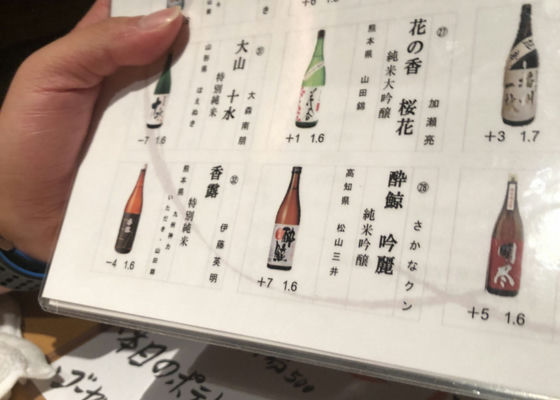 ㉗
花の香 桜花
純米大吟醸
加瀬亮
熊本県 山田錦
+1 1.6
+3 1.7
大山 十水
特別純米
大森南朋
山形県 はえぬき
−7 1.6
㉘
酔鯨 吟麗
純米吟醸
さかなクン
高知県 松山三井
+7 1.6
+5 1.6
香露
特別純米
伊藤英明
熊本県
九州神力
いただき・山田錦
−4 1.6
本日のポテ
500